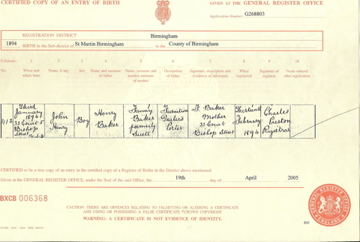 CERTIFIED COPY OF AN ENTRY OF BIRTH
GIVEN AT THE GENERAL REGISTER OFFICE
Application Number G268803
REGISTRATION DISTRICT Birmingham
1894 BIRTH in the Sub-district of St Martin Birmingham in the County of Birmingham
Columns:- 1 2 3 4 5 6 7 8 9 10
No. When and where born Name, if any Sex Name and surname of father Name, surname and maiden surname of mother Occupation of father Signature, description and residence of informant When registered Signature of registrar Name entered after registration
Third January 1894 Bishop Street
John Henry
Boy
Henry Baker
Fanny Baker formerly
F. Baker Mother Bishop Street
February 1894
Charles Registrar
CERTIFIED to be a true copy of an entry in the certified copy of a Register of Births in the District above mentioned.
Given at the GENERAL REGISTER OFFICE, under the Seal of the said Office, the 19th day of April 2005
BXCB 006368
CAUTION: THERE ARE OFFENCES RELATING TO FALSIFYING OR ALTERING A CERTIFICATE
AND USING OR POSSESSING A FALSE CERTIFICATE ©CROWN COPYRIGHT
WARNING: A CERTIFICATE IS NOT EVIDENCE OF IDENTITY.